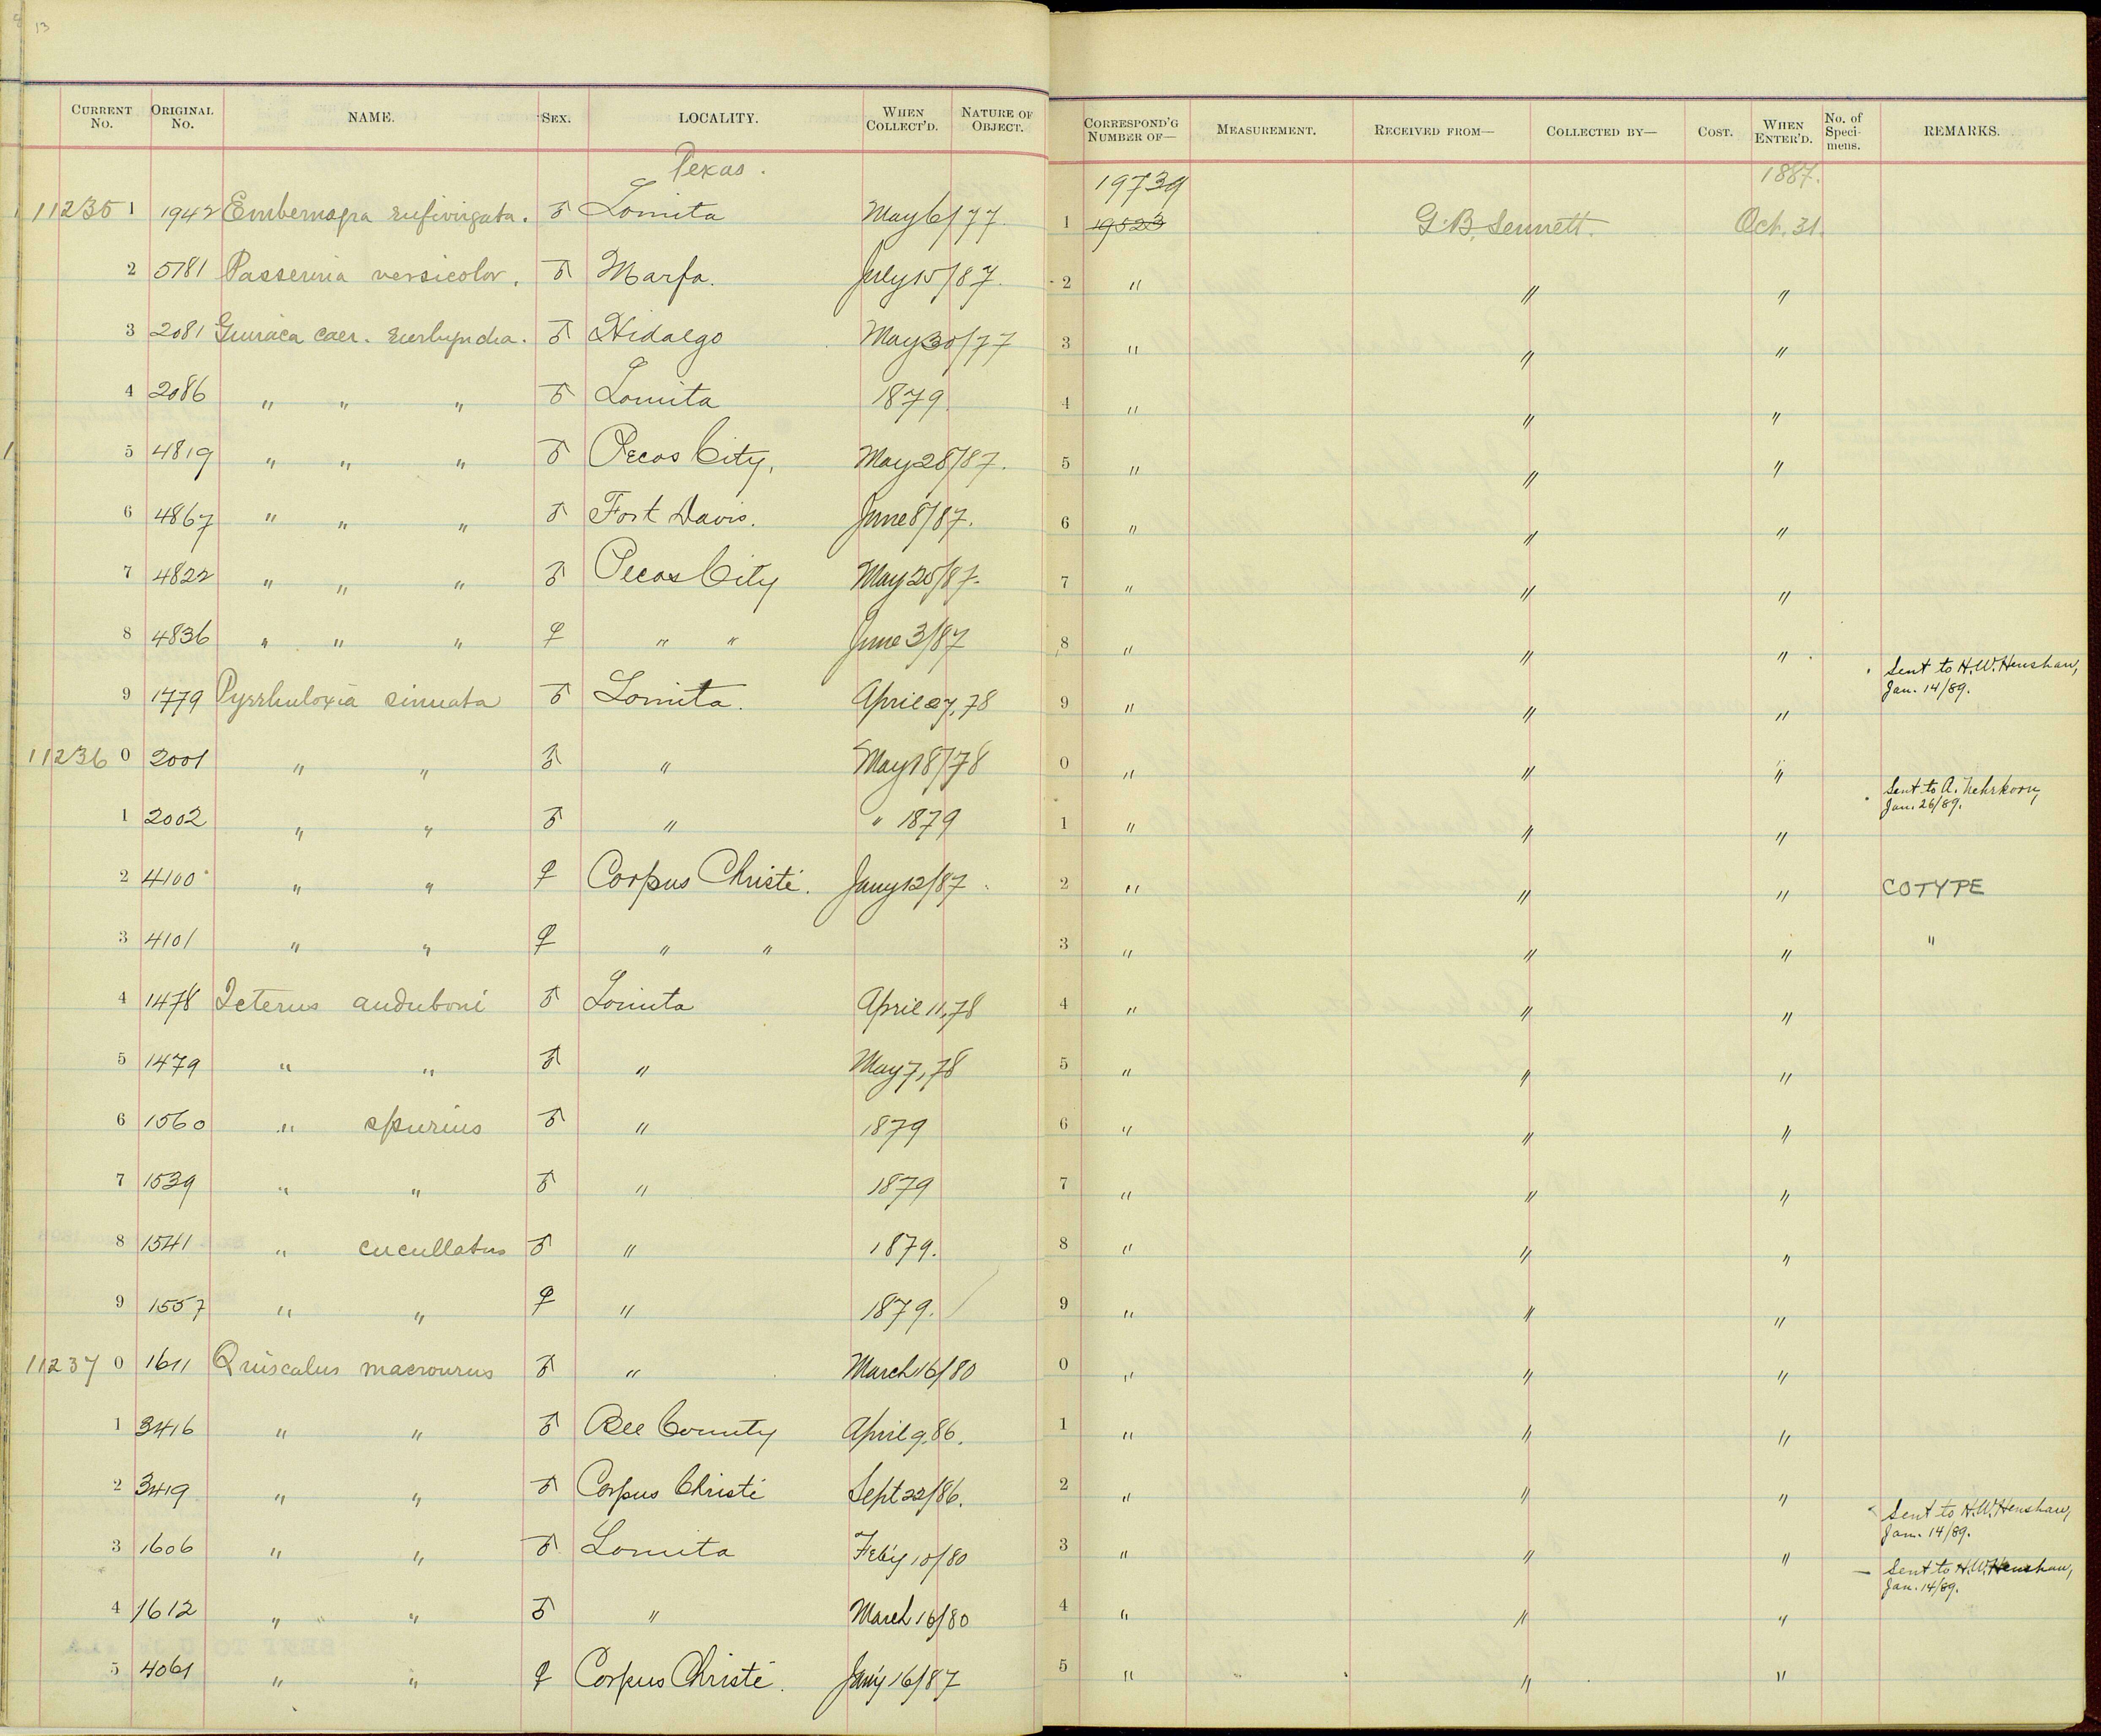 13
CURRENT No. ORIGINAL No. NAME. SEX. LOCALITY. WHEN COLLECT'D. NATURE OF OBJECT. CORRESPOND'G NUMBER OF— MEASUREMENT. RECEIVED FROM— COLLECTED BY— COST. WHEN ENTER'D. No. of Speci-mens. REMARKS.
Texas. 19739 1887.
11235 1 1942 Embernagra rufivirgata. ♂ Lomita May 6/77. 1 19523 G.B. Sennett. Oct. 31.
2 5181 Passerina versicolor. ♂ Marfa. July 15/87. 2 " " "
3 2081 Guiraca caer. eurhyncha. ♂ Hidalgo May 30/77 3 " " "
4 2086 " " " ♂ Lomita 1879 4 " " "
5 4819 " " " ♂ Pecos City, May 28/87. 5 " " "
6 4867 " " " ♂ Fort Davis. June 8/87. 6 " " "
7 4822 " " " ♂ Pecos City May 20/87. 7 " " "
8 4836 " " " ♀ " " June 3/87 8 " " "
9 1779 Pyrrhuloxia sinuata ♂ Lomita. April 27, 78 9 " " " Sent to H.W. Henshaw, Jan. 14/89.
11236 0 2001 " " ♂ " May 18/78 0 " " "
1 2002 " " ♂ " " 1879 1 " " " Sent to A. Nehrkorn, Jan. 26/89.
2 4100 " " ♀ Corpus Christi. Jany 12/87 2 " " " COTYPE
3 4101 " " ♀ " " 3 " " " "
4 1478 Icterus auduboni ♂ Lomita April 11, 78 4 " " "
5 1479 " " ♂ " May 7, 78 5 " " "
6 1560 " spurius ♂ " 1879 6 " " "
7 1539 " " ♂ " 1879 7 " " "
8 1541 " cucullatus ♂ " 1879. 8 " " "
9 1557 " " ♀ " 1879. 9 " " "
11237 0 1611 Quiscalus macrourus ♂ " March 16/80 0 " " "
1 3416 " " ♂ Bee County April 9, 86. 1 " " "
2 3419 " " ♂ Corpus Christi Sept 22/86. 2 " " "
3 1606 " " ♂ Lomita Feb'y 10/80 3 " " " Sent to H.W. Henshaw, Jan. 14/89.
4 1612 " " ♂ " March 16/80 4 " " " Sent to H.W. Henshaw, Jan. 14/89.
5 4061 " " ♀ Corpus Christi. Jan'y 16/87 5 " " "